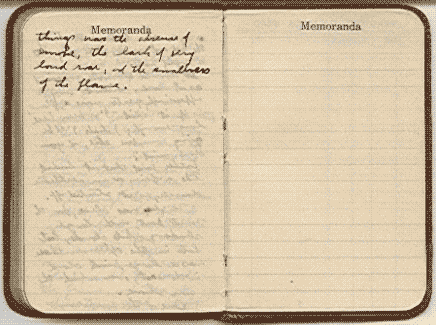 Memoranda
things was the absence of
smoke, the lack of very
loud roar, and the smallness
of the flame.
Memoranda